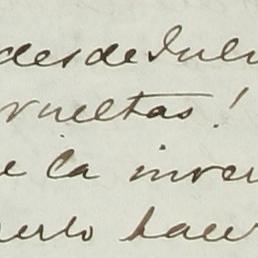 desde Juli
vueltas!
e la inver
erlo hace